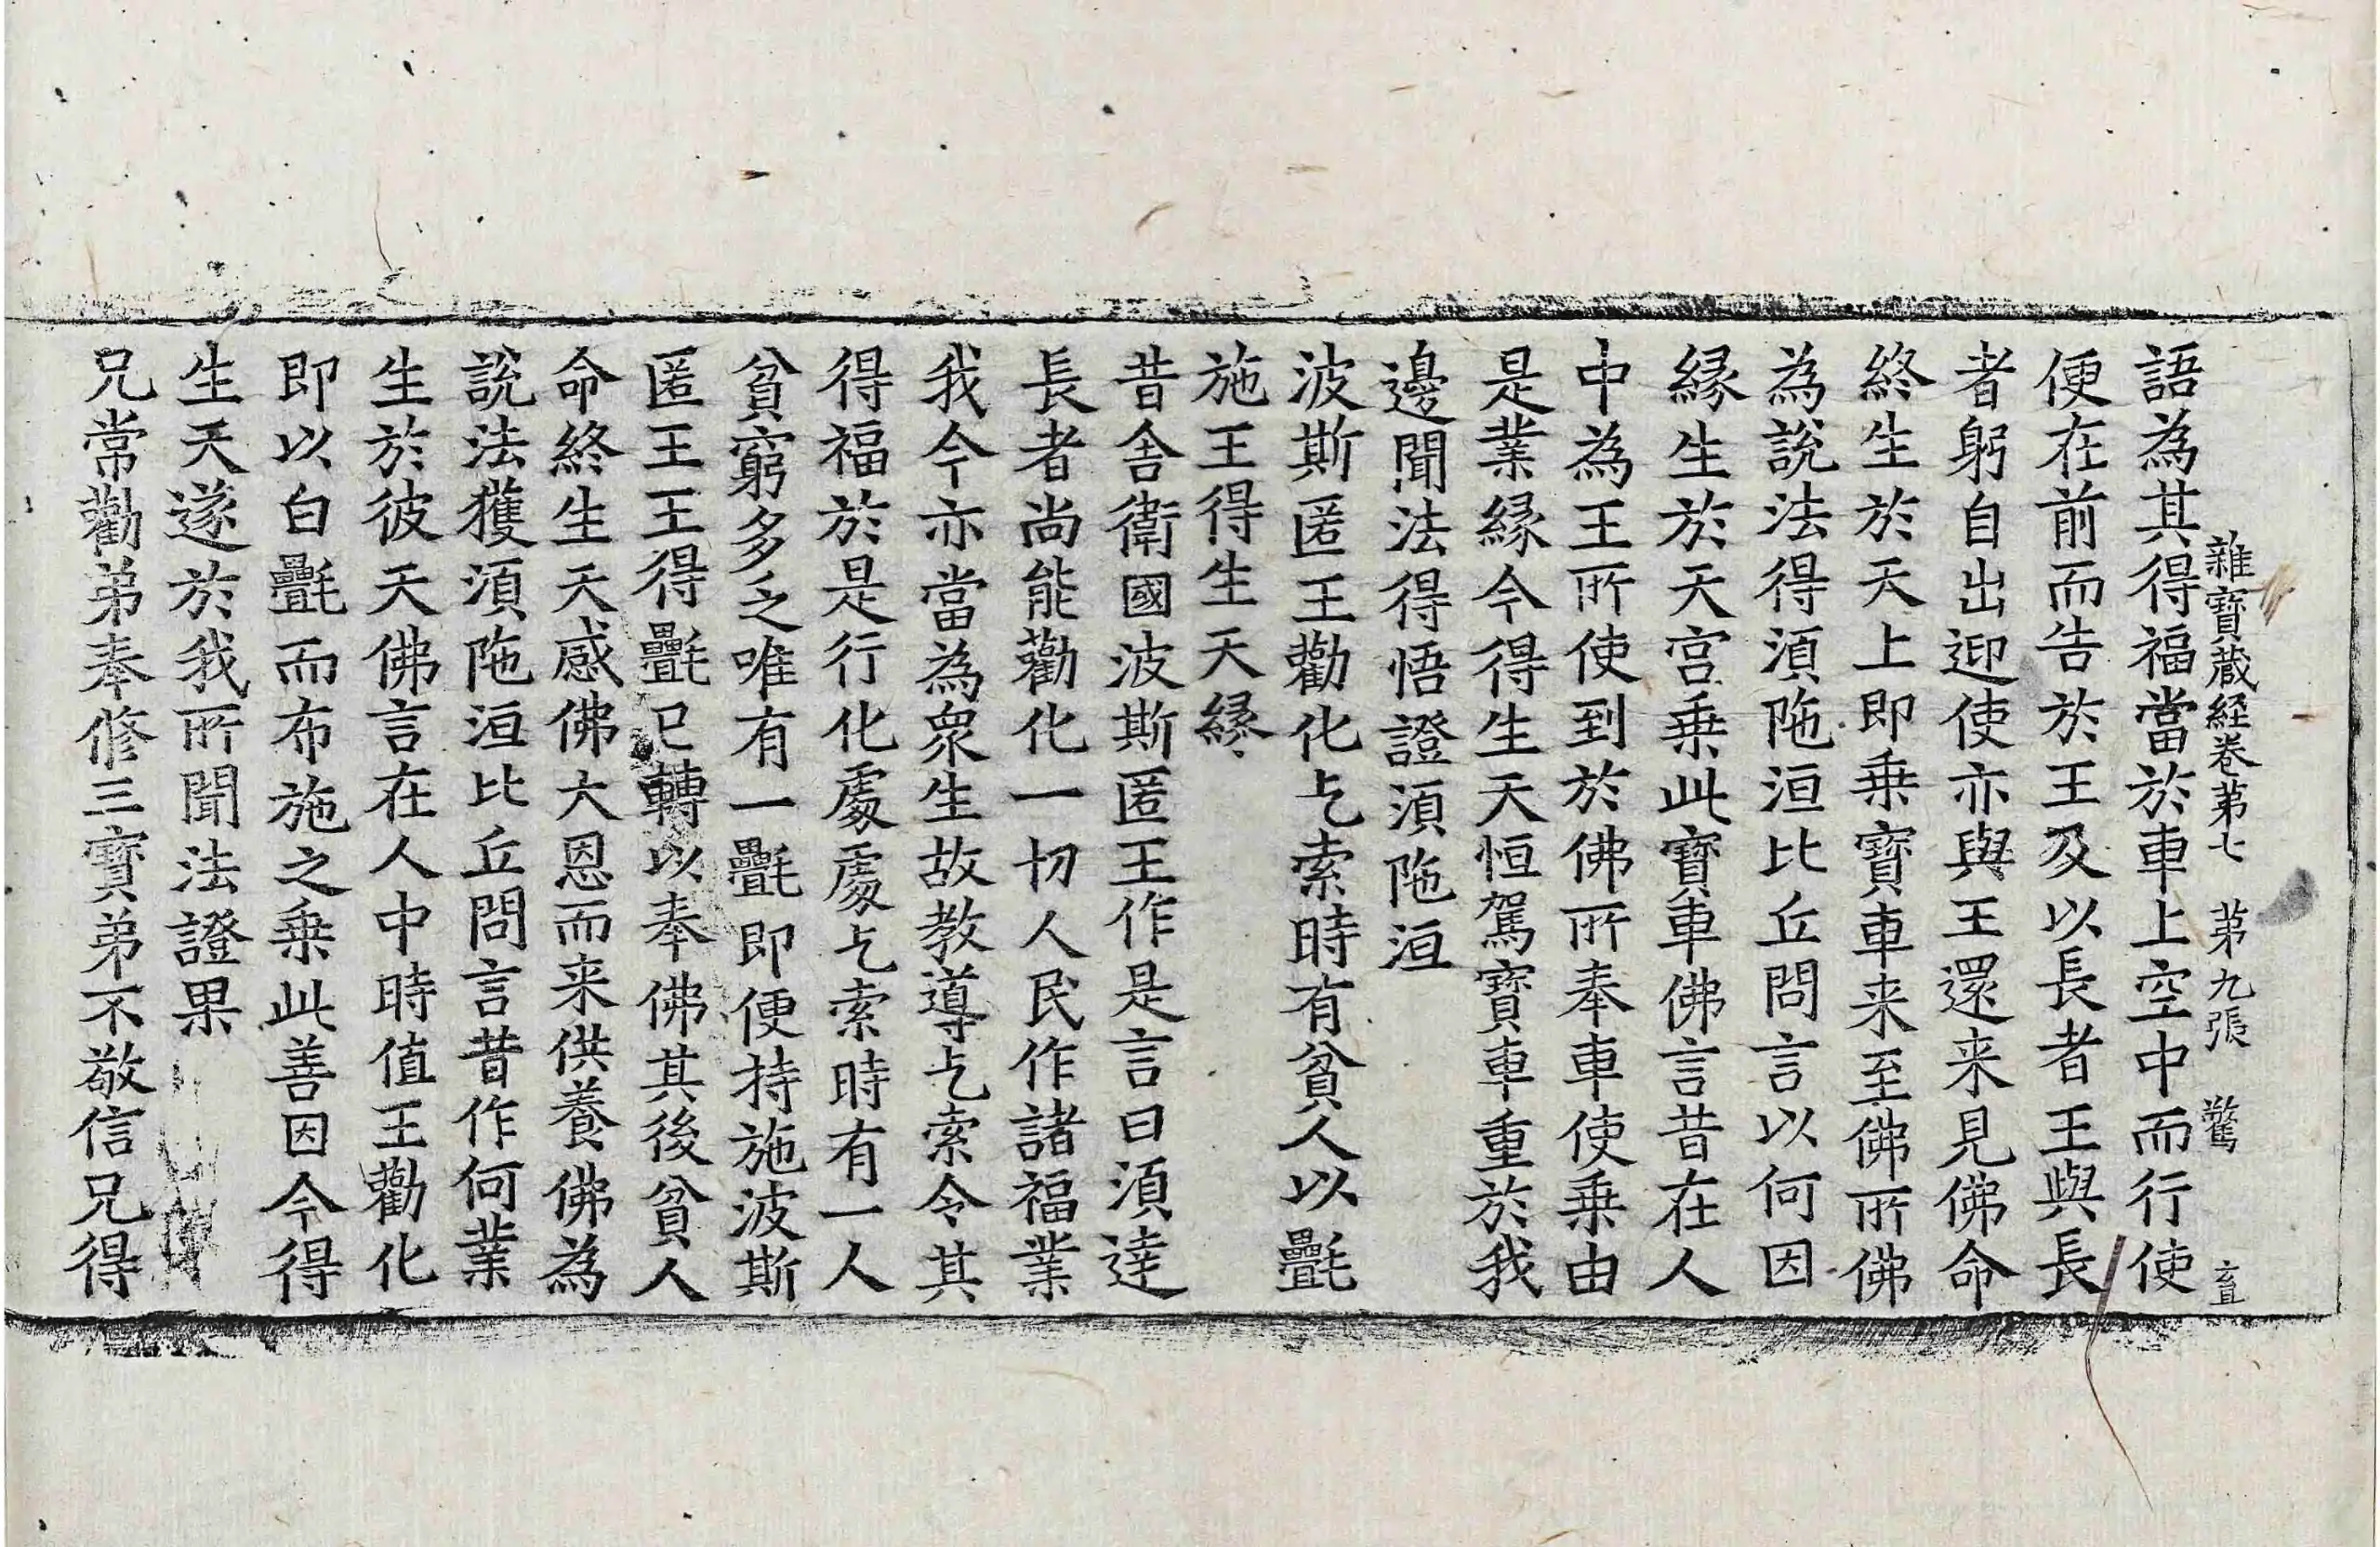 雜寶蔵経卷第七 第九張 驚 𥃲
語為其得福當於車上空中而行使
便在前而告於王及以長者王與長
者躬自出迎使亦與王還来見佛命
終生於天上即乗寶車来至佛所佛
為說法得湏陁洹比丘問言以何因
縁生於天宫乗此寶車佛言昔在人
中為王所使到於佛所奉車使乗由
是業縁今得生天恒駕寶車重於我
邊聞法得悟證湏陁洹
波斯匿王勸化乞索時有貧人以㲲
施王得生天縁
昔舍衛國波斯匿王作是言曰湏達
長者尚能勸化一切人民作諸福業
我今亦當為衆生故教導乞索令其
得福於是行化處處乞索時有一人
貧窮多乏唯有一㲲即便持施波斯
匿王王得㲲已轉以奉佛其後貧人
命終生天感佛大恩而来供養佛為
說法獲湏陁洹比丘問言昔作何業
生於彼天佛言在人中時值王勸化
即以白㲲而布施之乗此善因今得
生天遂於我所聞法證果
兄常勸弟奉修三寶弟不敬信兄得